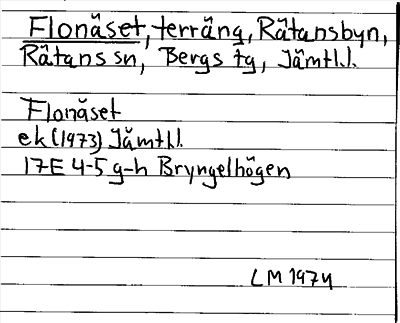 Flonäset, terräng, Rätansbyn,
Rätans sn, Bergs tg, Jämtl.l.
Flonäset
ek (1973) Jämtl.l.
17E 4-5 g-h Bryngelhögen
LM 1974